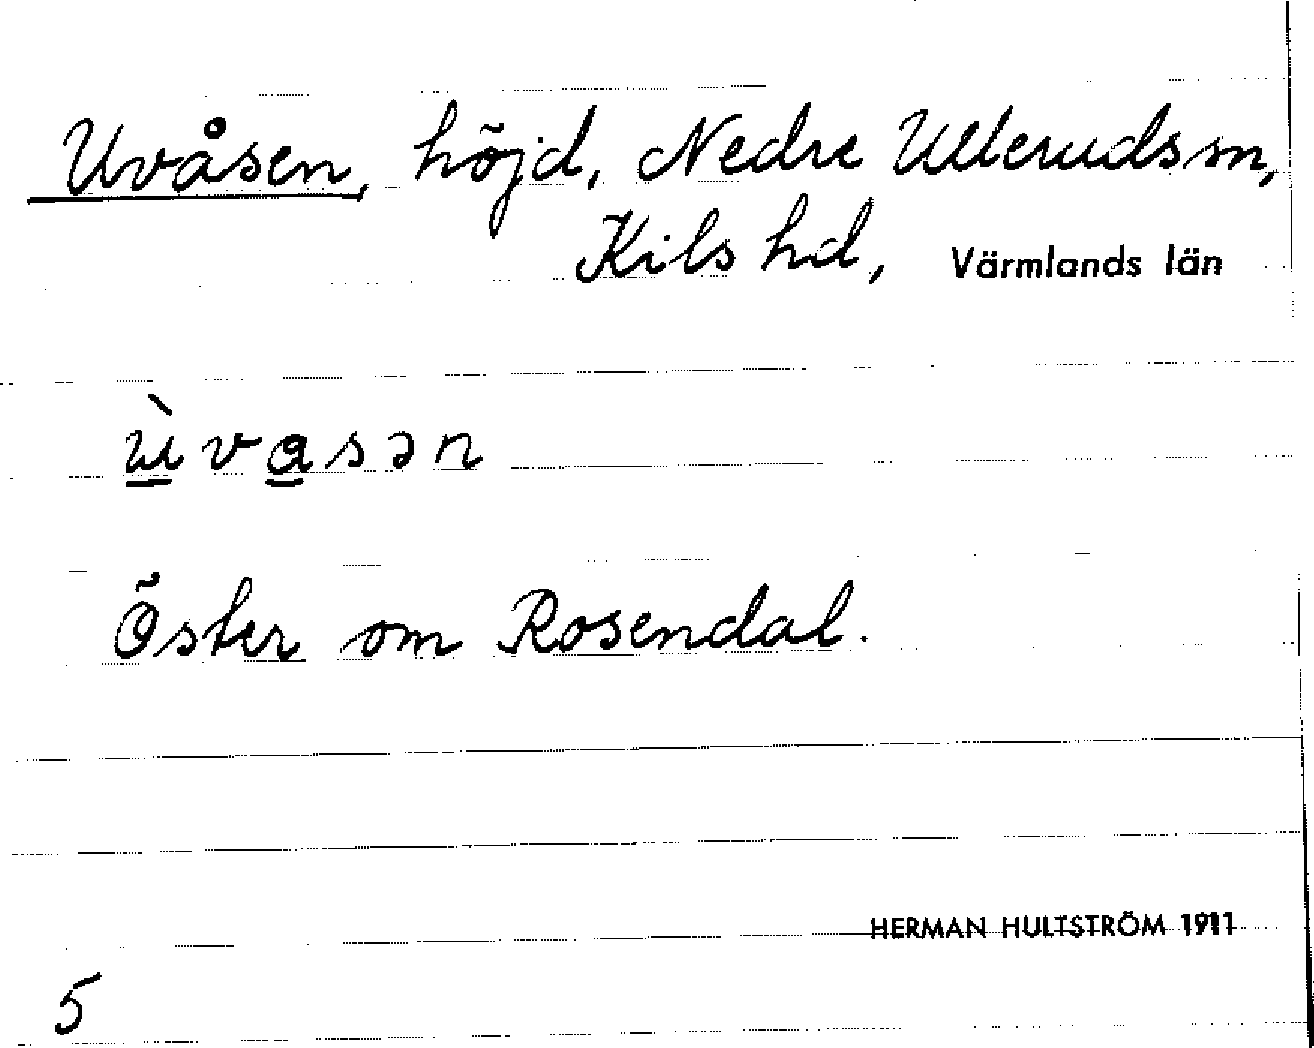 Uvåsen, höjd, Nedre Ulleruds sn,
Kils hd, Värmlands län
ùvasən
Öster om Rosendal.
HERMAN HULTSTRÖM 1911
5